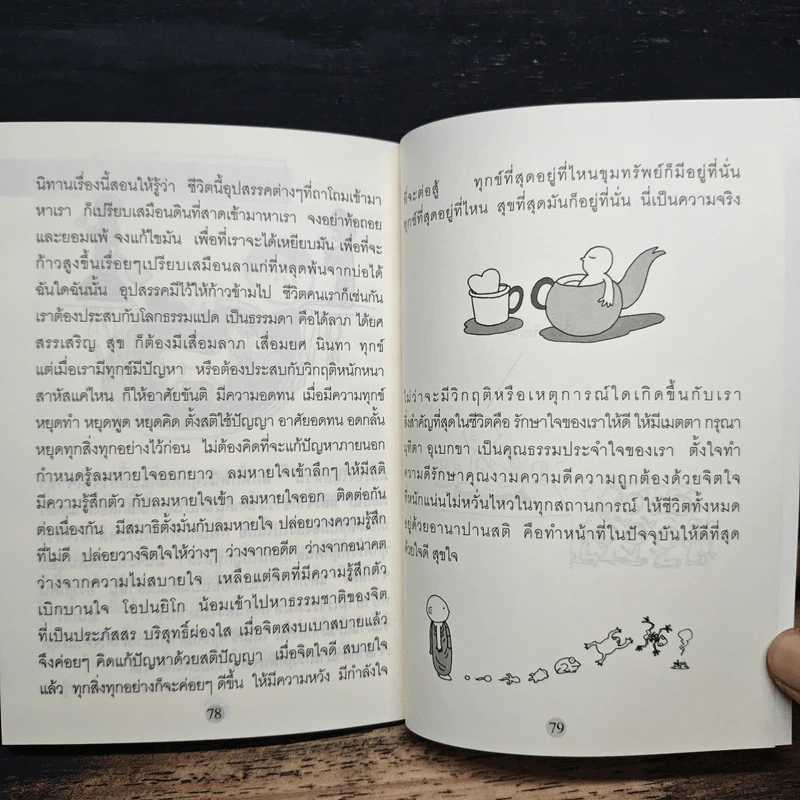 นิทานเรื่องนี้สอนให้รู้ว่า ชีวิตนี้อุปสรรคต่างๆที่ถาโถมเข้ามา
หาเรา ก็เปรียบเสมือนดินที่สาดเข้ามาหาเรา จงอย่าท้อถอย
และยอมแพ้ จงแก้ไขมัน เพื่อที่เราจะได้เหยียบมัน เพื่อที่จะ
ก้าวสูงขึ้นเรื่อยๆเปรียบเสมือนลาแก่ที่หลุดพ้นจากบ่อได้
ฉันใดฉันนั้น อุปสรรคมีไว้ให้ก้าวข้ามไป ชีวิตคนเราก็เช่นกัน
เราต้องประสบกับโลกธรรมแปด เป็นธรรมดา คือได้ลาภ ได้ยศ
สรรเสริญ สุข ก็ต้องมีเสื่อมลาภ เสื่อมยศ นินทา ทุกข์
แต่เมื่อเรามีทุกข์มีปัญหา หรือต้องประสบกับวิกฤติหนักหนา
สาหัสแค่ไหน ก็ให้อาศัยขันติ มีความอดทน เมื่อมีความทุกข์
หยุดทำ หยุดพูด หยุดคิด ตั้งสติใช้ปัญญา อาศัยอดทน อดกลั้น
หยุดทุกสิ่งทุกอย่างไว้ก่อน ไม่ต้องคิดที่จะแก้ปัญหาภายนอก
กำหนดรู้ลมหายใจออกยาว ลมหายใจเข้าลึกๆ ให้มีสติ
มีความรู้สึกตัว กับลมหายใจเข้า ลมหายใจออก ติดต่อกัน
ต่อเนื่องกัน มีสมาธิตั้งมั่นกับลมหายใจ ปล่อยวางความรู้สึก
ที่ไม่ดี ปล่อยวางจิตใจให้ว่างๆ ว่างจากอดีต ว่างจากอนาคต
ว่างจากความไม่สบายใจ เหลือแต่จิตที่มีความรู้สึกตัว
เบิกบานใจ โอปนยิโก น้อมเข้าไปหาธรรมชาติของจิต
ที่เป็นประภัสสร บริสุทธิ์ผ่องใส เมื่อจิตสงบเบาสบายแล้ว
จึงค่อยๆ คิดแก้ปัญหาด้วยสติปัญญา เมื่อใจดี สบายใจ
แล้ว ทุกสิ่งทุกอย่างก็จะค่อยๆ ดีขึ้น ให้มีความหวัง มีกำลังใจ
78
ที่จะต่อสู้ ทุกข์ที่สุดอยู่ที่ไหนขุมทรัพย์ก็มีอยู่ที่นั่น
ทุกข์ที่สุดอยู่ที่ไหน สุขที่สุดมันก็อยู่ที่นั่น นี่เป็นความจริง
ไม่ว่าจะมีวิกฤติหรือเหตุการณ์ใดเกิดขึ้นกับเรา
สิ่งสำคัญที่สุดในชีวิตคือ รักษาใจของเราให้ดี ให้มีเมตตา กรุณา
มุทิตา อุเบกขา เป็นคุณธรรมประจำใจของเรา ตั้งใจทำ
ความดีรักษาคุณงามความดีความถูกต้องด้วยจิตใจ
ที่หนักแน่นไม่หวั่นไหวในทุกสถานการณ์ ให้ชีวิตทั้งหมด
อยู่ด้วยอานาปานสติ คือทำหน้าที่ในปัจจุบันให้ดีที่สุด
ด้วยใจดี สุขใจ
79